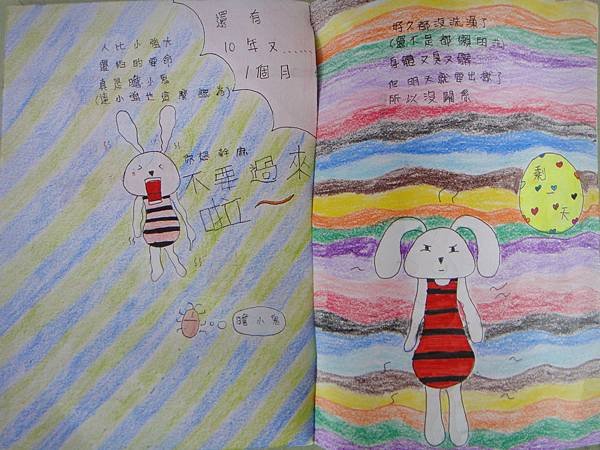 還有
10年又......
1個月
人比小強大
還怕的要命
真是膽小鬼
(連小強也這麼認為)
你想幹麻
不要過來
啦~
膽小鬼
好久都沒洗澡了
(還不是都懶的洗)
身體又臭又髒
但明天就要出獄了
所以沒關係
剩
一
天